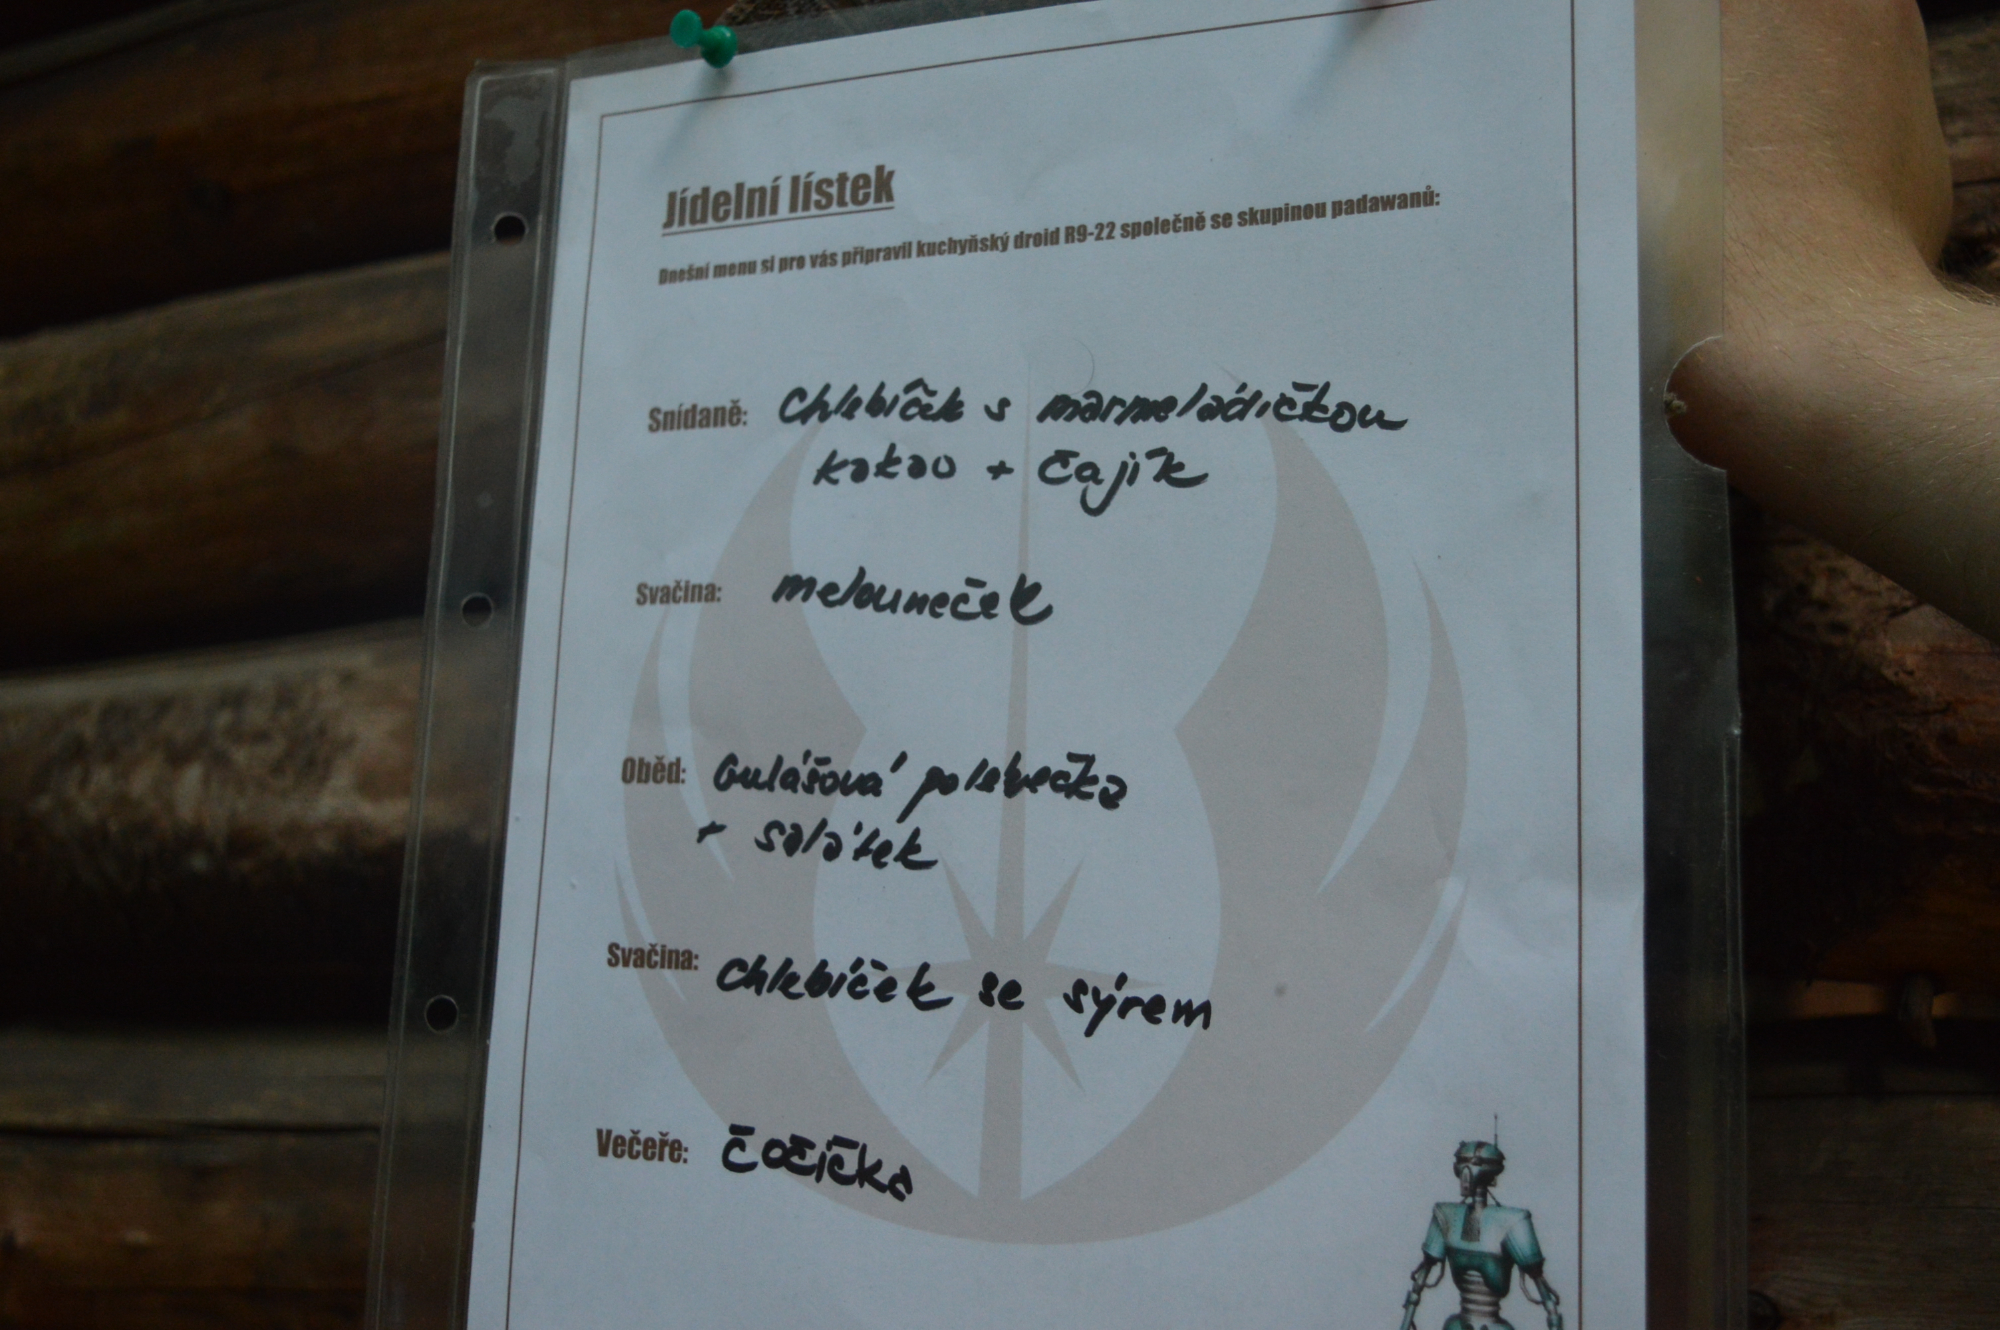 Jídelní lístek
Dnešní menu si pro vás připravil kuchyňský droid R9-22 společně se skupinou padawanů:
Snídaně: Chlebíček s marmeládičkou
kakao + čajík
Svačina: melouneček
Oběd: Gulášová polévečka
+ salátek
Svačina: Chlebíček se sýrem
Večeře: čočička